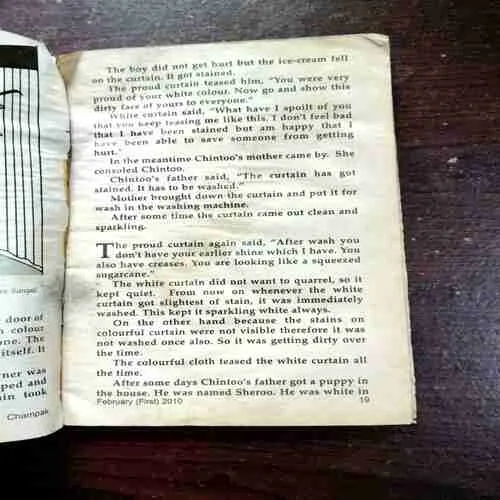 re Sangal
door of
n colour
one. The
itself. It
ner was
ped and
in took
Champak
The boy did not get hurt but the ice-cream fell
on the curtain. It got stained.
The proud curtain teased him, "You were very
proud of your white colour. Now go and show this
dirty face of yours to everyone."
White curtain said, "What have I spoilt of you
that you keep teasing me like this. I don't feel bad
that I have been stained but am happy that I
have been able to save someone from getting
hurt."
In the meantime Chintoo's mother came by. She
consoled Chintoo.
Chintoo's father said, "The curtain has got
stained. It has to be washed."
Mother brought down the curtain and put it for
wash in the washing machine.
After some time the curtain came out clean and
sparkling.
The proud curtain again said, "After wash you
don't have your earlier shine which I have. You
also have creases. You are looking like a squeezed
sugarcane."
The white curtain did not want to quarrel, so it
kept quiet. From now on whenever the white
curtain got slightest of stain, it was immediately
washed. This kept it sparkling white always.
On the other hand because the stains on
colourful curtain were not visible therefore it was
not washed once also. So it was getting dirty over
the time.
The colourful cloth teased the white curtain all
the time.
After some days Chintoo's father got a puppy in
the house. He was named Sheroo. He was white in
February (First) 2010
19